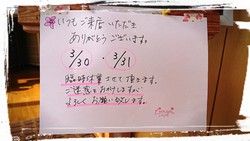 いつもご来店いただき
ありがとうございます。
3/30 ・ 3/31
臨時休業させて頂きます。
ご迷惑をおかけしますが
よろしくお願い致します。